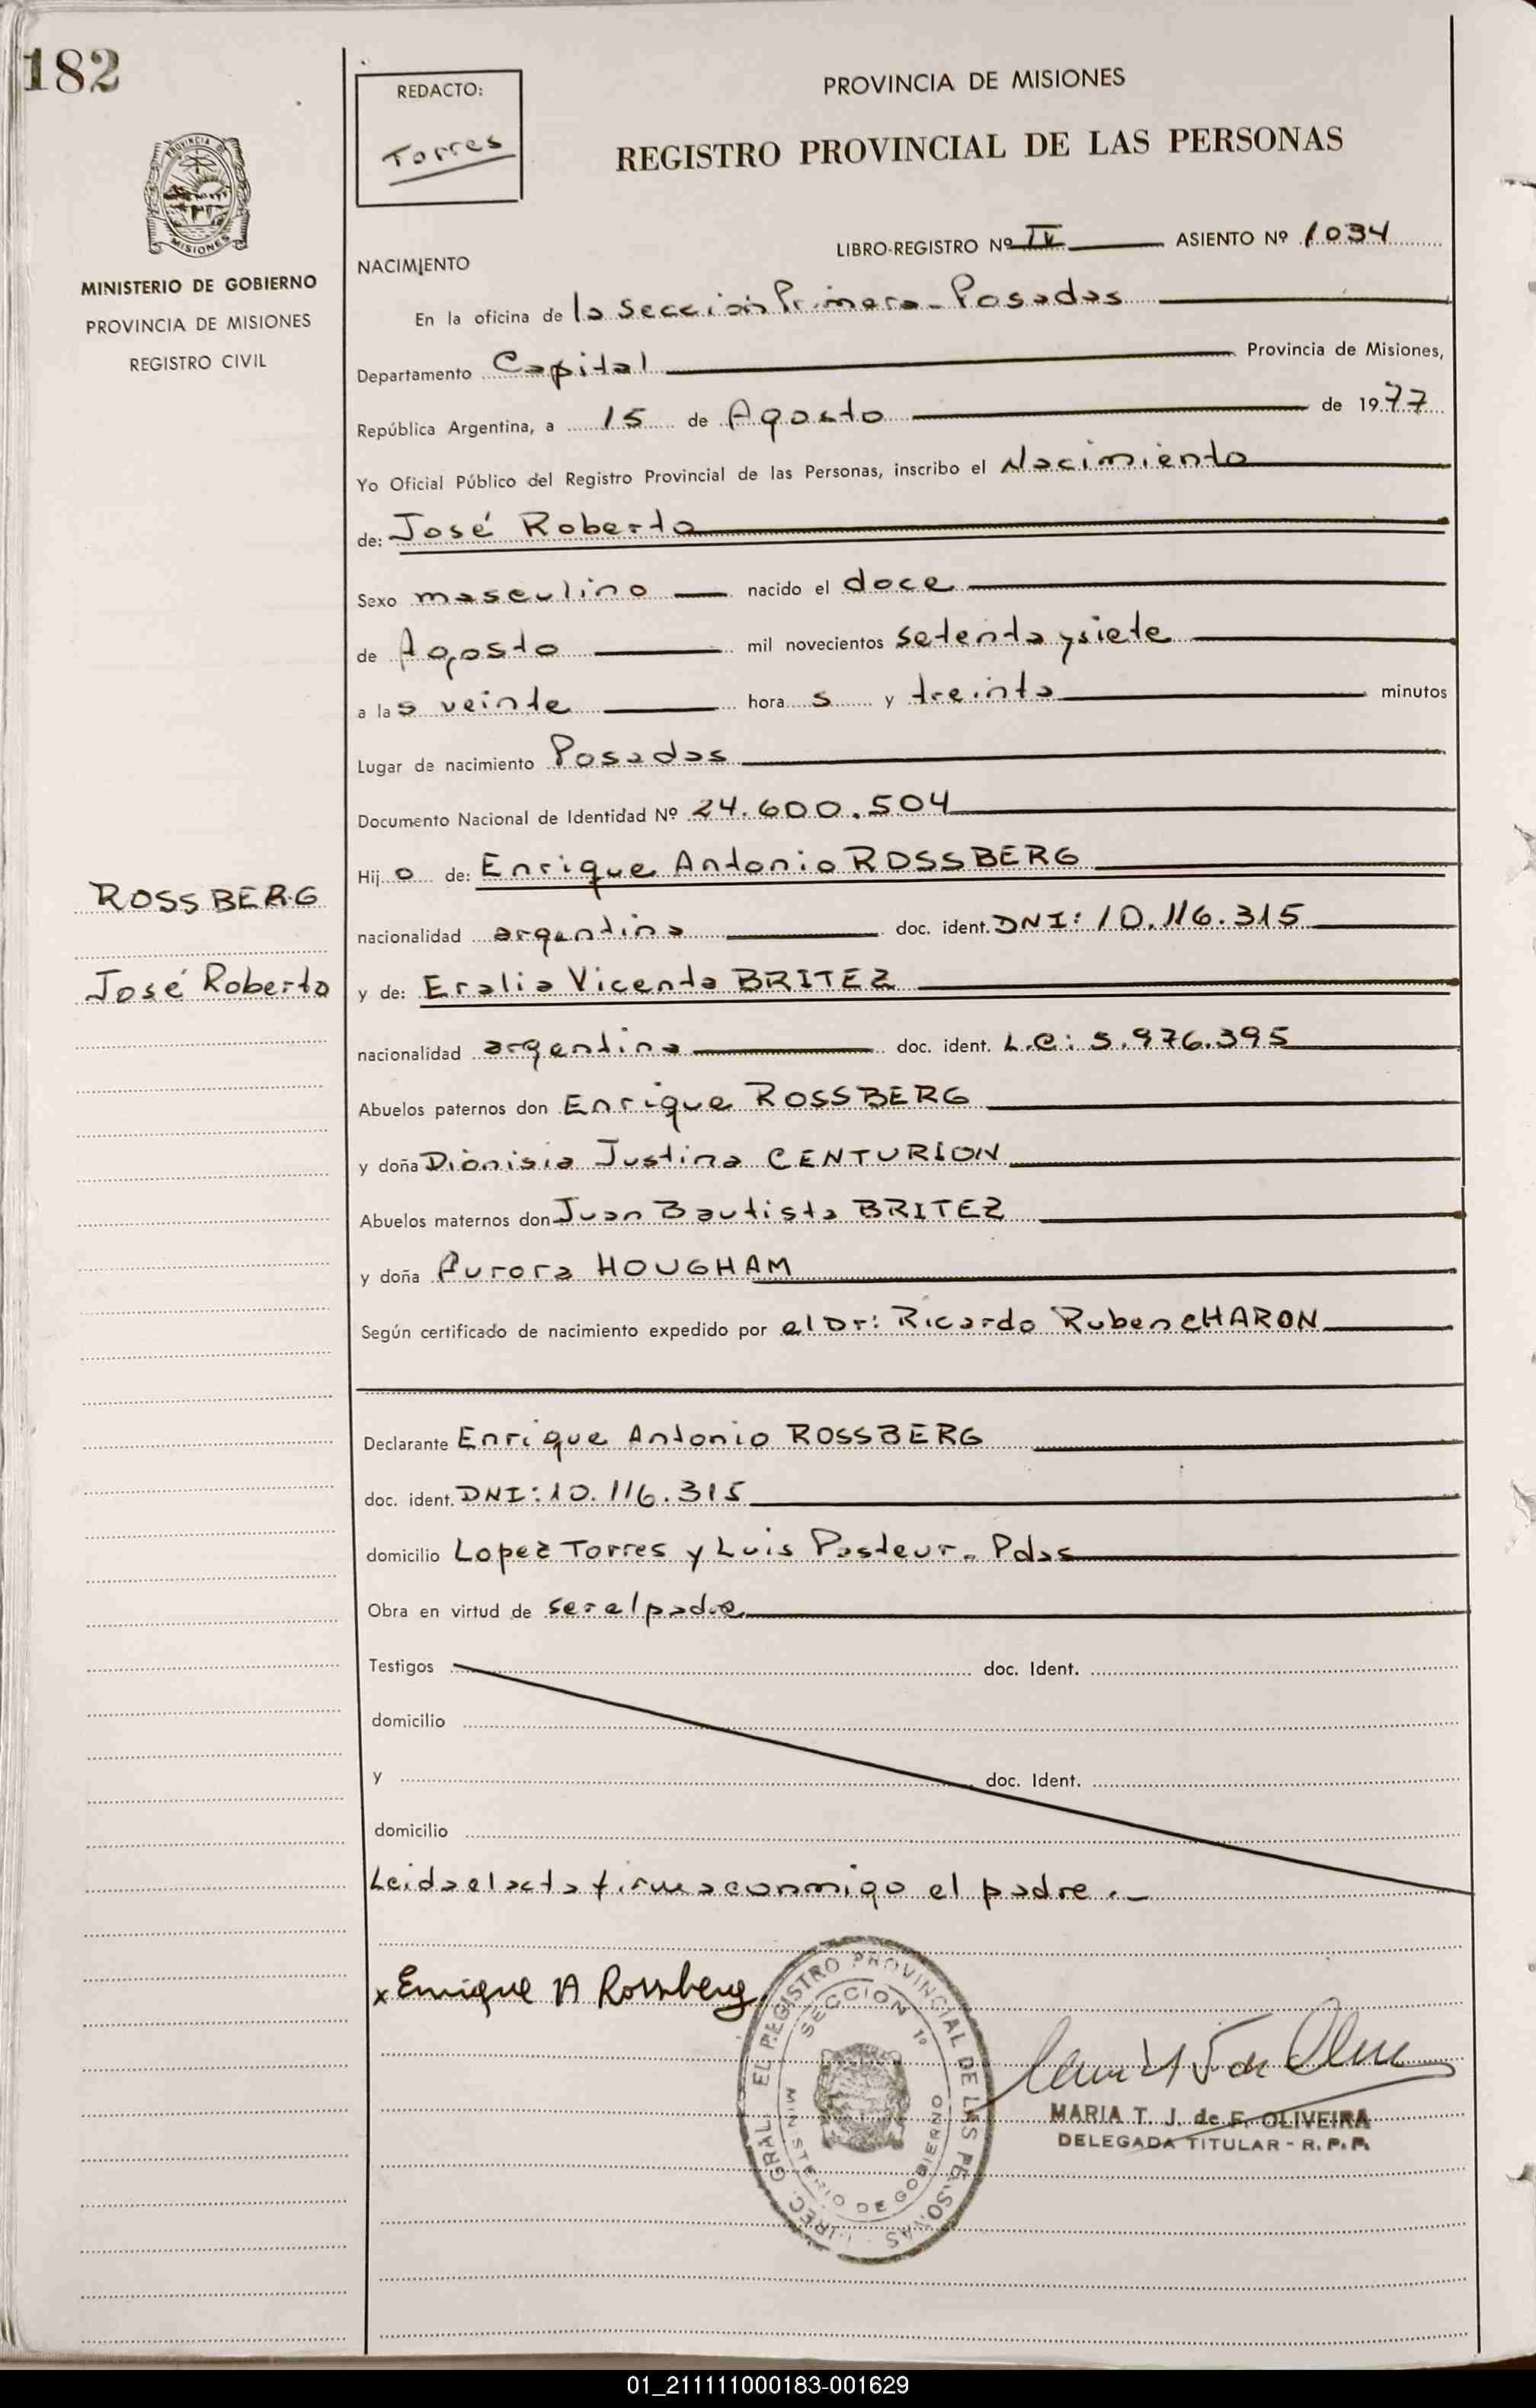 182
REDACTO:
Torres
PROVINCIA DE MISIONES
REGISTRO PROVINCIAL DE LAS PERSONAS
PROVINCIA D
MISIONES
MINISTERIO DE GOBIERNO
PROVINCIA DE MISIONES
REGISTRO CIVIL
LIBRO-REGISTRO Nº IV ASIENTO Nº 1034
NACIMIENTO
En la oficina de la Sección Primera - Posadas
Departamento Capital Provincia de Misiones,
República Argentina, a 15 de Agosto de 1977
Yo Oficial Público del Registro Provincial de las Personas, inscribo el Nacimiento
de: José Roberto
Sexo masculino nacido el doce
de Agosto mil novecientos setenta y siete
a las veinte hora s y treinta minutos
Lugar de nacimiento Posadas
Documento Nacional de Identidad Nº 24.600.504
Hij o de: Enrique Antonio ROSSBERG
ROSSBERG
nacionalidad argentina doc. ident. DNI: 10.116.315
José Roberto
y de: Eralia Vicenta BRITEZ
nacionalidad argentina doc. ident. L.C: 5.976.395
Abuelos paternos don Enrique ROSSBERG
y doña Dionisia Justina CENTURION
Abuelos maternos don Juan Bautista BRITEZ
y doña Aurora HOUGHAM
Según certificado de nacimiento expedido por el Dr: Ricardo Ruben CHARON
Declarante Enrique Antonio ROSSBERG
doc. ident. DNI: 10.116.315
domicilio Lopez Torres y Luis Pasteur. Pdas
Obra en virtud de ser el padre
Testigos doc. Ident.
domicilio
y doc. Ident.
domicilio
Leida el acta firma conmigo el padre.-
x Enrique A Rossberg
DIREC. GRAL. EL REGISTRO PROVINCIAL DE LAS PERSONAS
SECCION 1º
MINISTERIO DE GOBIERNO
MARIA T. J. de F. OLIVEIRA
DELEGADA TITULAR - R. P. P.
01_211111000183-001629